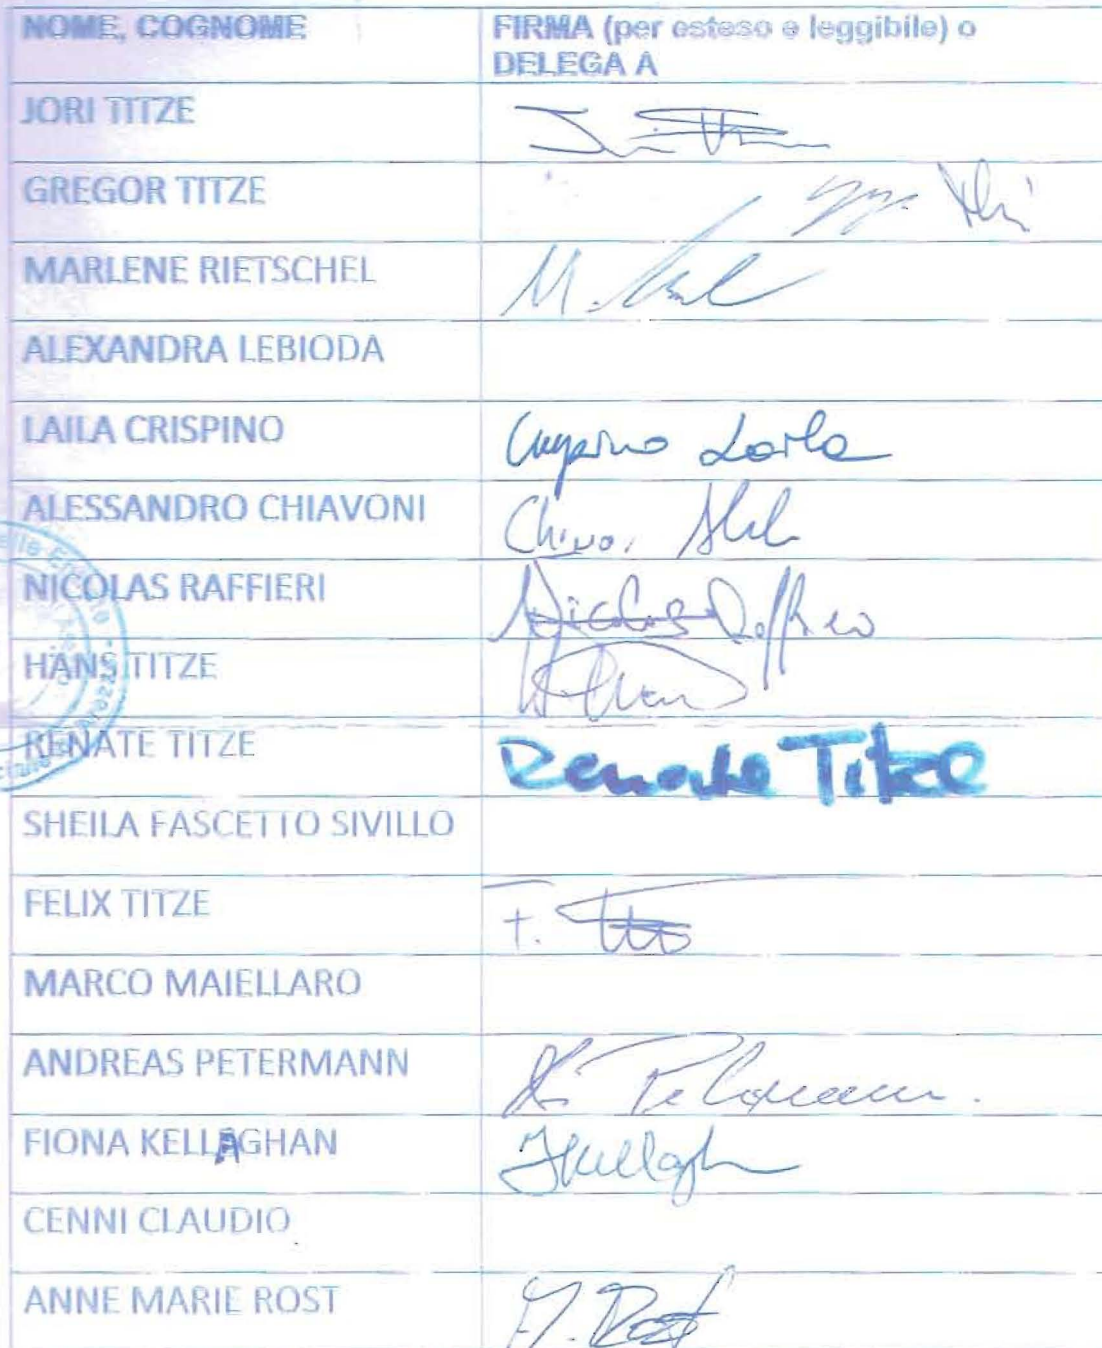 NOME, COGNOME
FIRMA (per esteso e leggibile) o
DELEGA A
JORI TITZE
GREGOR TITZE
MARLENE RIETSCHEL
M.
ALEXANDRA LEBIODA
LAILA CRISPINO
Crispino Laila
ALESSANDRO CHIAVONI
NICOLAS RAFFIERI
Nicolas Raffieri
HANS TITZE
RENATE TITZE
Renate Titze
SHEILA FASCETTO SIVILLO
FELIX TITZE
F.
MARCO MAIELLARO
ANDREAS PETERMANN
FIONA KELLAGHAN
CENNI CLAUDIO
ANNE MARIE ROST
Rost